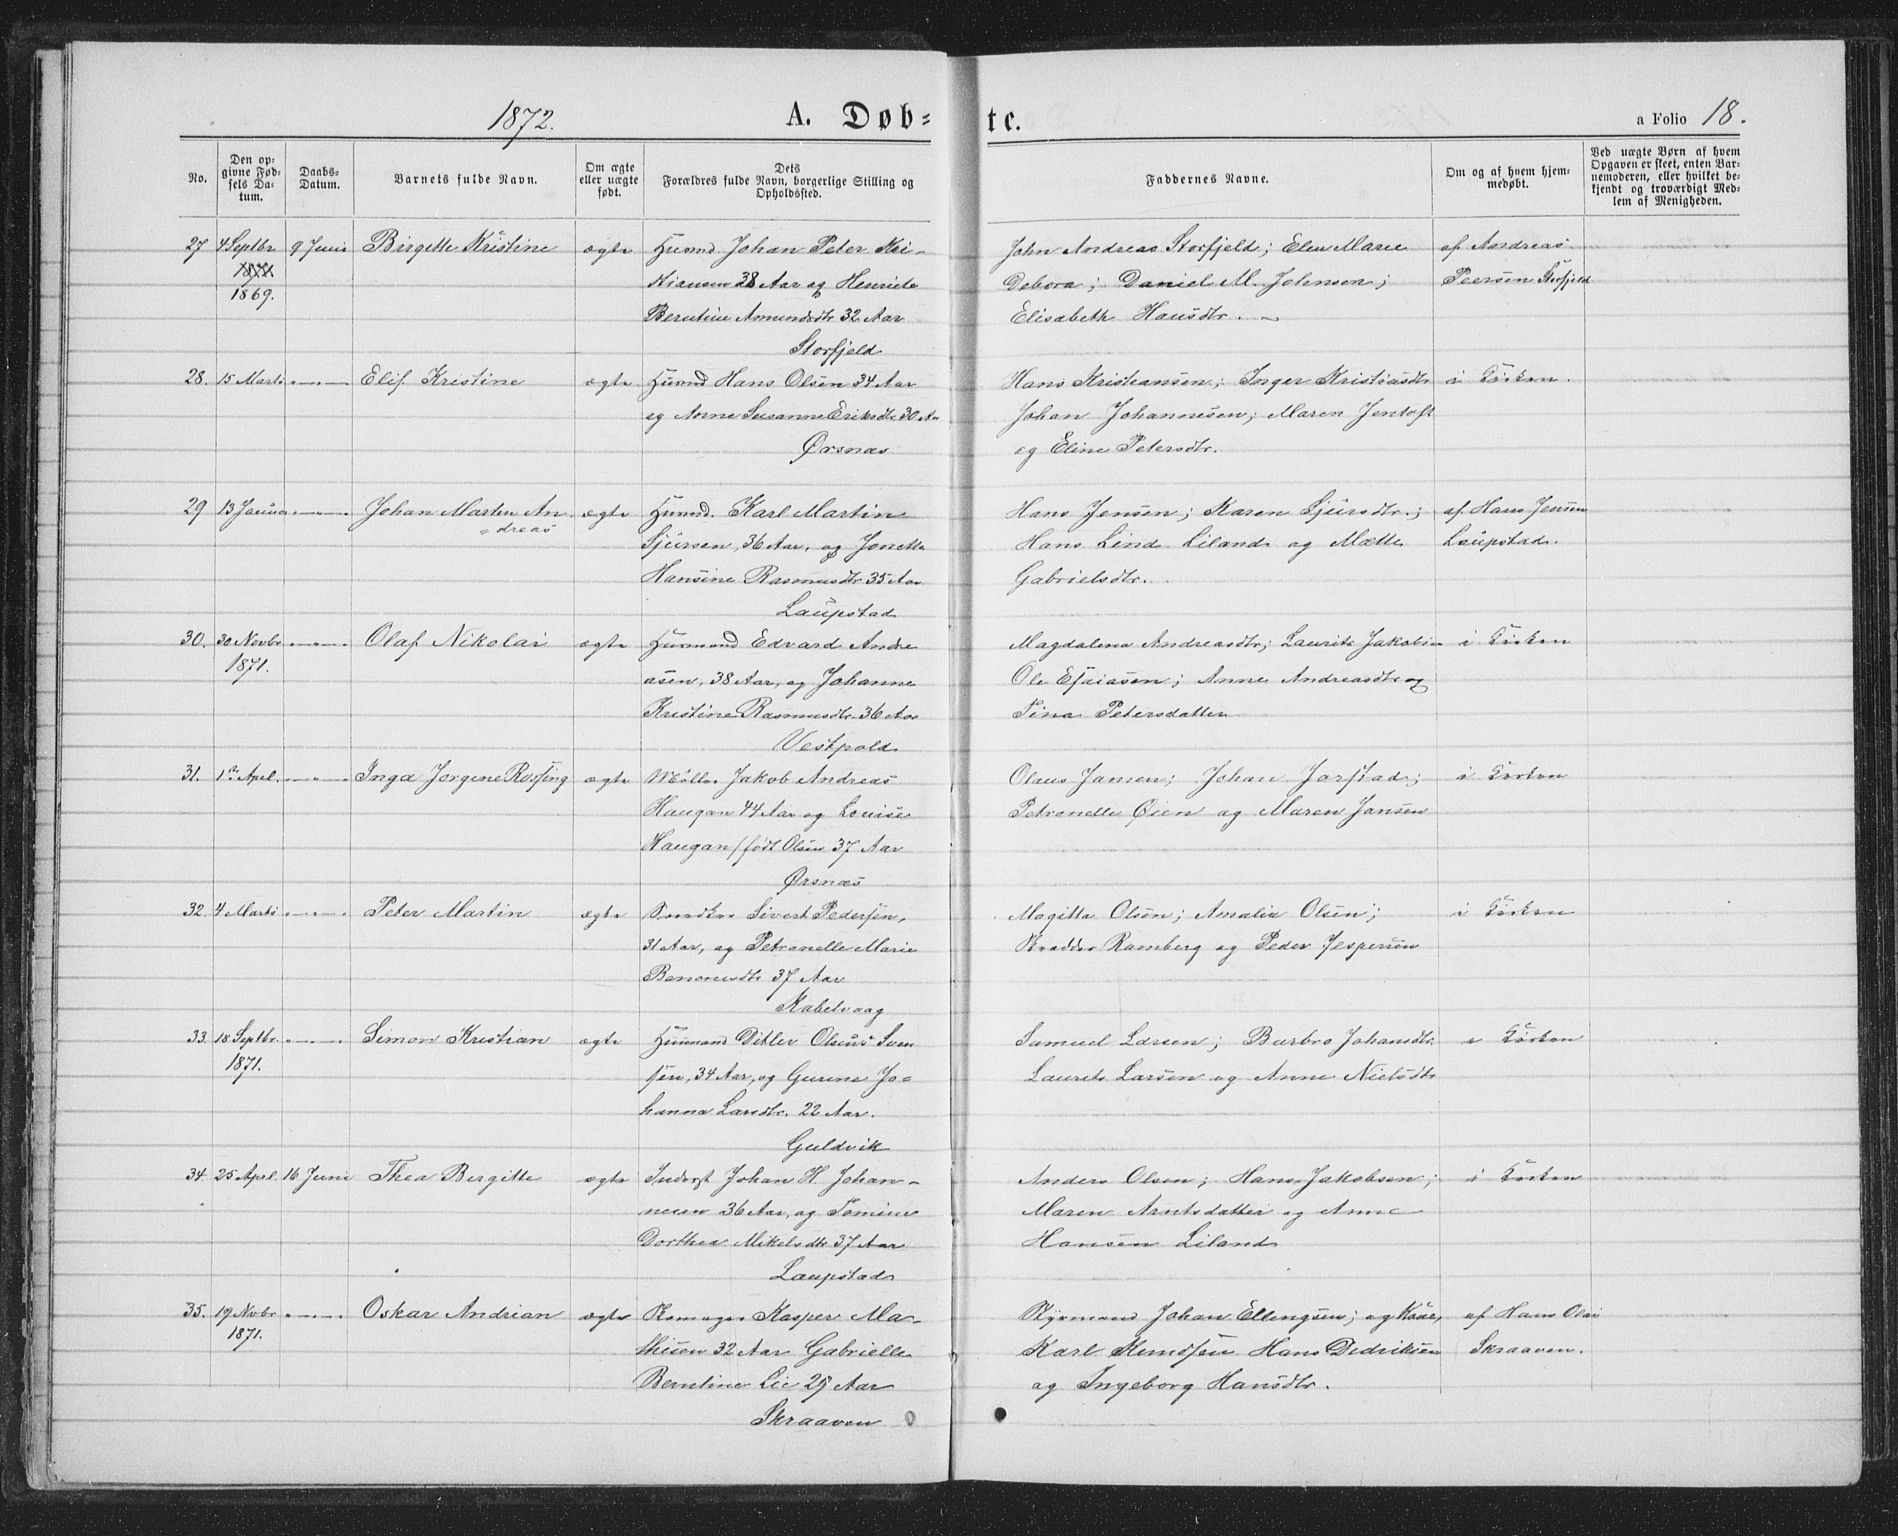 1872.
A. Døb=
te.
a Folio 18.
No.
Den op=
givne Fød=
sels Da=
tum.
Daabs=
Datum.
Barnets fulde Navn.
Om ægte
eller uægte
født.
Dets
Forældres fulde Navn, borgerlige Stilling og
Opholdssted.
Faddernes Navne.
Om og af hvem hjem=
medøbt.
Ved uægte Børn af hvem
Opgaven er skeet, enten Bar=
nemoderen, eller hvilket be=
kjendt og troværdigt Med=
lem af Menigheden.
27 4 Septbr 9 Juni Birgitte Kristine ægte Husmd Johan Peter Kri- John Andreas Storfjeld; Elen Marie af Andreas
1871 Kiansen 38 Aar og Henriete Debora; Daniel M. Johnsen; Peersen Storfjeld
1869. Berntine Amundsdtr 32 Aar Elisabeth Hansdtr.
Storfjeld
28. 15 Marts Elif Kristine ægte Husmd Hans Olsen 34 Aar Hans Kristiansen; Inger Kristiansdtr i Kirken.
og Anne Susanne Eriksdtr 30 Aar Johan Johannesen; Maren Jentoft
Ørsnæs og Eline Petersdtr.
29 13 Januar Johan Martin An ægte Husmd. Karl Martin Hans Jensen; Karen Sjursdtr.; af Hans Jensen
=dreas Sjursen, 36 Aar, og Jonetta Hans Lind Liland og Mætte Laupstad.
Hansine Rasmusdtr 35 Aar Gabrielsdtr.
Laupstad
30. 30 Novbr Olaf Nikolai ægte Husmand Edvard Andre Magdalena Andreasdtr; Laurits Jakobsen i Kirken
1871. asen, 38 Aar, og Johanne Ole Esaiasen; Anne Andreasdtr og
Kristine Rasmusdtr 36 Aar Tina Petersdatter
Vestpold
31. 1ste Apel. Inga Jorgene Rossing ægte Møller Jakob Andreas Olaus Jansen; Johan Jorstad; i Kirken
Haugan 44 Aar og Louise Petronelle Øien og Maren Jansen
Haugan / født Olsen 37 Aar
Ørsnæs
32. 4 Marts Peter Martin ægte Snedker Sivert Pedersen, Magitta Olsen; Amalia Olsen; i Kirken
31 Aar, og Petronelle Marie Ramberg og Peder Jespersen
Benoniusdtr 37 Aar
Kabelvaag
33. 18 Septbr. Simon Kristian ægte Husmand Ditlev Olaus Sven Samuel Larsen; Barbro Johansdtr. i Kirken
1871. sen, 34 Aar, og Gurine Jo= Laurits Larsen og Anne Nielsdtr
hanna Larsdtr. 22 Aar.
Guldvik
34. 25 Aprl. 16 Juni Thea Bergitte ægte Inderst Johan H. Johan- Anders Olsen; Hans Jakobsen; i Kirken
nesen 36 Aar, og Tomine Maren Arntsdatter og Anne
Dorthea Mikelsdtr 37 Aar Hansen Liland
Laupstad
35. 19 Novbr Oskar Andrian ægte Kasper Ma- Styrmand Johan Ellengsen; og Kone, af Hans Olsen
1871. thisen 32 Aar Gabrielle Karl Knudsen Hans Didriksen Skraaven.
Berntine Lie 29 Aar og Ingeborg Hansdtr.
Skraaven